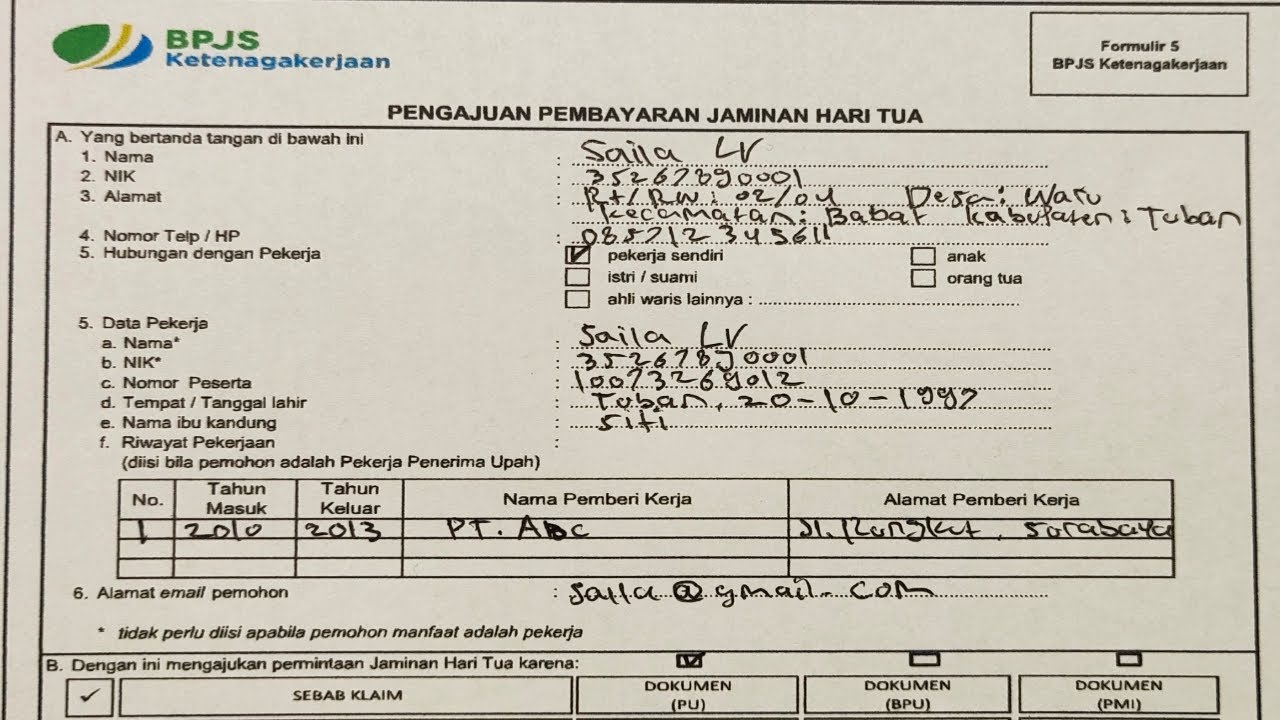 BPJS
Ketenagakerjaan
Formulir 5
BPJS Ketenagakerjaan
PENGAJUAN PEMBAYARAN JAMINAN HARI TUA
A. Yang bertanda tangan di bawah ini
1. Nama : Saila LV
2. NIK : 35267890001
3. Alamat : Rt/RW: 02/04 Desa: Waru
Kecamatan: Babat Kabupaten: Tuban
4. Nomor Telp / HP : 085712345611
5. Hubungan dengan Pekerja ✓ pekerja sendiri anak
istri / suami orang tua
ahli waris lainnya :
5. Data Pekerja
a. Nama* : Saila LV
b. NIK* : 35267890001
c. Nomor Peserta : 10073269012
d. Tempat / Tanggal lahir : Tuban, 20-10-1992
e. Nama ibu kandung : Siti
f. Riwayat Pekerjaan :
(diisi bila pemohon adalah Pekerja Penerima Upah)
No. Tahun Masuk Tahun Keluar Nama Pemberi Kerja Alamat Pemberi Kerja
1 2010 2013 PT. Abc Jl. Rungkut, Surabaya
6. Alamat email pemohon : saila@gmail.com
* tidak perlu diisi apabila pemohon manfaat adalah pekerja
B. Dengan ini mengajukan permintaan Jaminan Hari Tua karena: ✓
✓ SEBAB KLAIM DOKUMEN (PU) DOKUMEN (BPU) DOKUMEN (PMI)